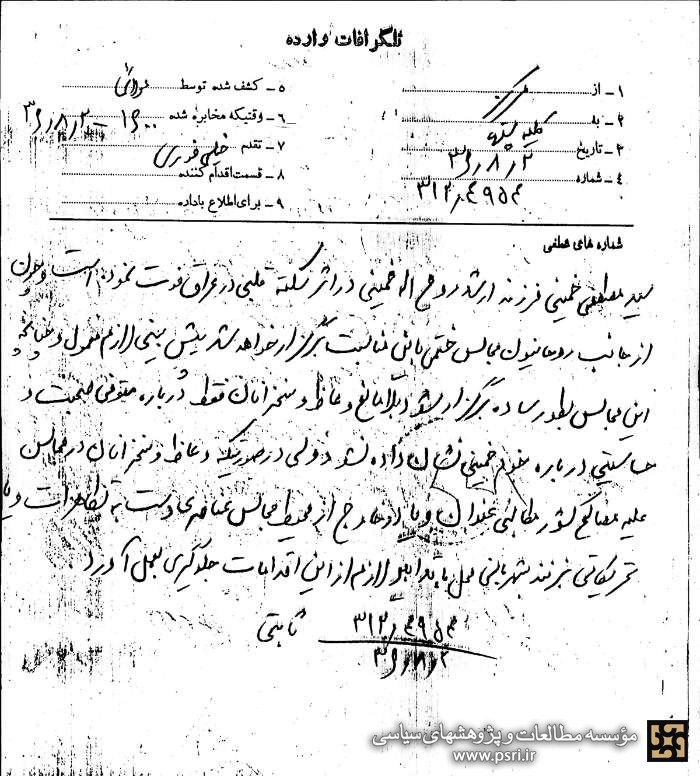 تلگرافات وارده
۱ـ از مرکز
۲ـ به کلیه
۳ـ تاریخ ۳۶٫۸٫۲
۴ـ شماره ۳۱۲٫۴۹۵۴
۵ـ کشف شده توسط
۶ـ وقتیکه مخابره شده ۱۶۰۰ - ۳۶٫۸٫۲
۷ـ تقدم خیلی فوری
۸ـ قسمت اقدام کننده
۹ـ برای اطلاع باداره
شماره های عطفی
سید مصطفی خمینی فرزند ارشد روح اله خمینی در اثر سکته قلبی در عراق فوت نموده است و چون
از جانب روحانیون مجالس ختمی باین مناسبت برگزار خواهد شد پیش بینی لازم معمول و چنانچه
این مجالس بطور ساده برگزار شود بلامانع و وعاظ و سخنرانان فقط درباره متوفی صحبت و
حساسیتی درباره خود خمینی نشان داده نشود ولی در صورتیکه وعاظ و سخنرانان در مجالس
علیه مصالح کشور مطالبی عنوان و یا در خارج از محیط مجالس عناصری دست به تظاهرات و یا
تحریکاتی بزنند شهربانی محل باید لازم از این اقدامات جلوگیری بعمل آورد.
۳۱۲٫۴۹۵۴ ثابتی
۳۶٫۸٫۲
مؤسسه مطالعات و پژوهشهای سیاسی
www.psri.ir